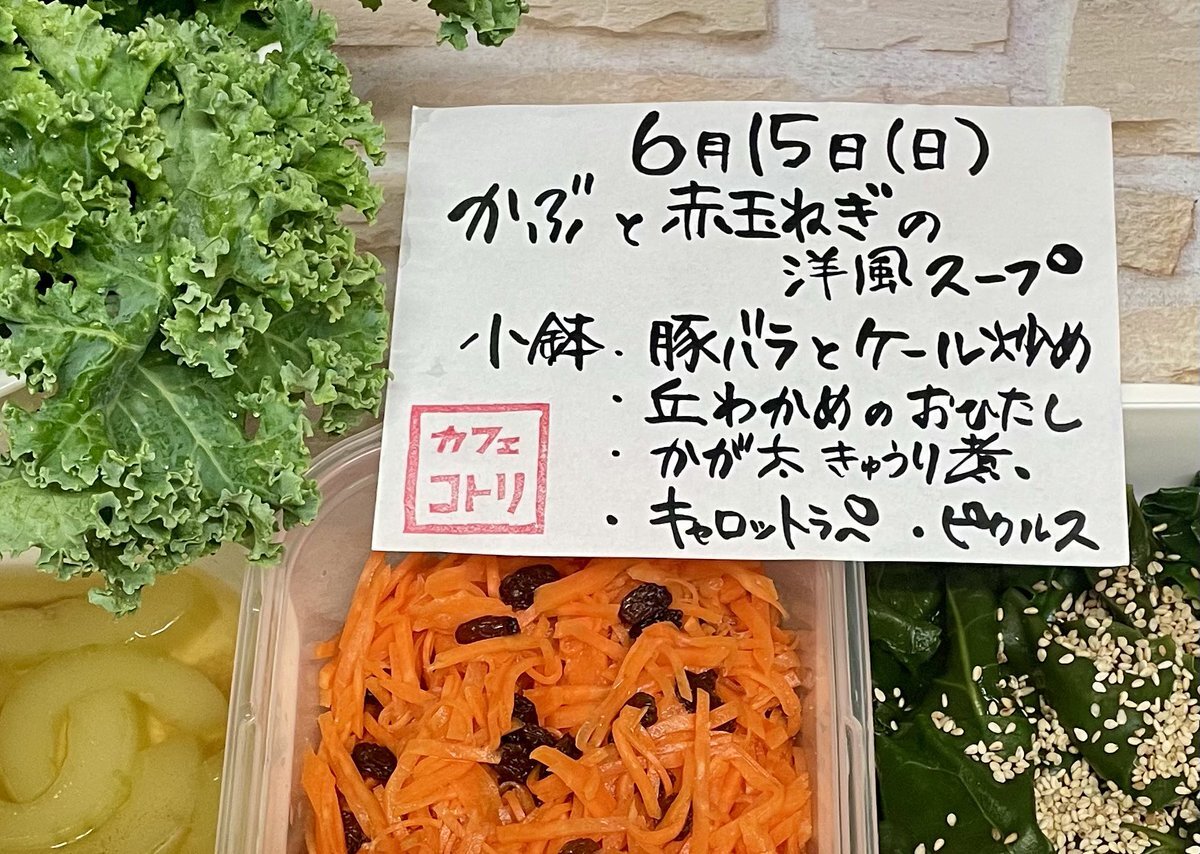 6月15日(日)
かぶと赤玉ねぎの
洋風スープ
小鉢・豚バラとケール炒め
・丘わかめのおひたし
・かが太きゅうり煮、
・キャロットラペ・ピクルス
カフェ
コトリ